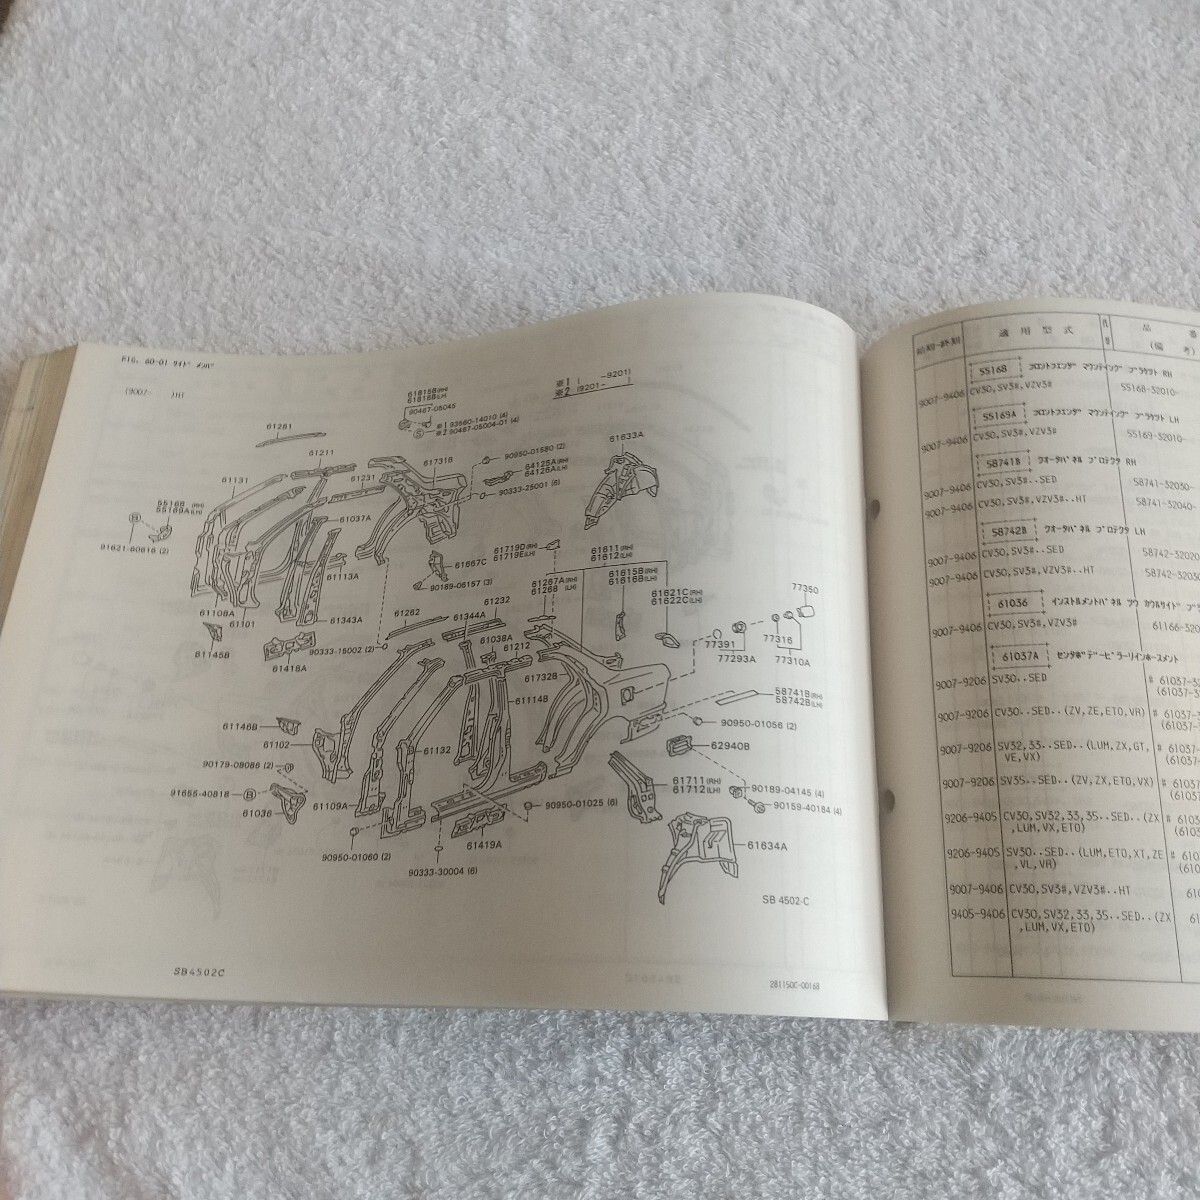 FIG. 60-01 サイド メンバ
(9007- )HT
※1 ( -9201)
※2 (9201- )
61815B(RH)
61816B(LH)
90467-05045
※1 93560-14010 (4)
※2 90467-05004-01 (4)
61261
61211
61131
61231
61731B
90950-01580 (2)
64125A(RH)
64126A(LH)
90333-25001 (6)
61633A
55168 (RH)
55169A(LH)
B
91621-80618 (2)
61037A
61113A
61667C
90189-06157 (3)
61719D(RH)
61719E(LH)
61611(RH)
61612(LH)
61615B(RH)
61616B(LH)
61621C(RH)
61622C(LH)
61267A(RH)
61268 (LH)
77350
77316
77310A
77391
77293A
61108A
61101
61343A
61145B
61418A
90333-15002 (2)
61262
61232
61344A
61038A
61212
61732B
61114B
58741B(RH)
58742B(LH)
90950-01056 (2)
61146B
61102
61132
62940B
90179-08066 (2)
91656-40818
B
61036
61109A
90950-01025 (6)
61711(RH)
61712(LH)
90189-04145 (4)
90159-40184 (4)
61419A
90950-01060 (2)
90333-30004 (6)
61634A
SB 4502-C
SB4502C
281150C-00168
適用型式
品番
(備考)
55168 フロントフエンダ マウンテイング ブラケツト RH
9007-9406 CV30,SV3#,VZV3# 55168-32010-
55169A フロントフエンダ マウンテイング ブラケツト LH
9007-9406 CV30,SV3#,VZV3# 55169-32010-
58741B クオータパネル プロテクタ RH
9007-9406 CV30,SV3#..SED 58741-32030-
9007-9406 CV30,SV3#,VZV3#..HT 58741-32040-
58742B クオータパネル プロテクタ LH
9007-9406 CV30,SV3#..SED 58742-32020
9007-9406 CV30,SV3#,VZV3#..HT 58742-3203
61036 インストルメントパネル ツウ カウルサイド
9007-9406 CV30,SV3#,VZV3# 61166-320
61037A センタボデーピラーリインホースメント
9007-9206 SV30..SED # 61037-32
(61037-3
9007-9206 CV30..SED..(ZV,ZE,ETO,VR) # 61037-3
(61037-
9007-9206 SV32,33..SED..(LUM,ZX,GT, # 61037-
VE,VX) (61037-
9007-9206 SV35..SED..(ZV,ZX,ETO,VX) # 61037
(61037
9206-9405 CV30,SV32,33,35..SED..(ZX # 6103
,LUM,VX,ETO) (6103
9206-9405 SV30..SED..(LUM,ETO,XT,ZE # 610
,VL,VR) (610
9007-9406 CV30,SV3#,VZV3#..HT 610
9405-9406 CV30,SV32,33,35..SED..(ZX 61
,LUM,VX,ETO)